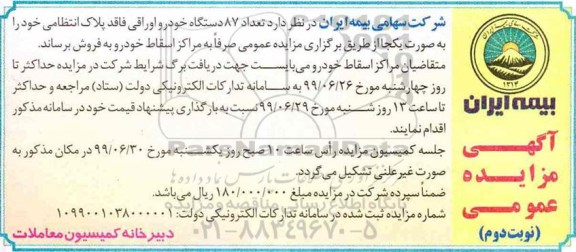 شرکت سهامی بیمه ایران در نظر دارد تعداد ۸۷ دستگاه خودرو اوراقی فاقد پلاک انتظامی خود را
به صورت یکجا از طریق برگزاری مزایده عمومی صرفاً به مراکز اسقاط خودرو به فروش برساند.
متقاضیان مراکز اسقاط خودرو می‌بایست جهت دریافت برگ شرایط شرکت در مزایده حداکثر تا
روز چهارشنبه مورخ ۹۹/۰۶/۲۶ به سامانه تدارکات الکترونیکی دولت (ستاد) مراجعه و حداکثر
تا ساعت ۱۳ روز شنبه مورخ ۹۹/۰۶/۲۹ نسبت به بارگذاری پیشنهاد قیمت خود در سامانه مذکور
اقدام نمایند.
جلسه کمیسیون مزایده رأس ساعت ۱۰ صبح روز یکشنبه مورخ ۹۹/۰۶/۳۰ در مکان مذکور به
صورت غیرعلنی تشکیل می گردد.
ضمناً سپرده شرکت در مزایده مبلغ ۱۸۰/۰۰۰/۰۰۰ ریال می‌باشد.
شماره مزایده ثبت شده در سامانه تدارکات الکترونیکی دولت: ۱۰۹۹۰۰۱۰۳۸۰۰۰۰۰۱
دبیرخانه کمیسیون معاملات
۱۳۱۴
بیمه ایران
آگهی
مزایده
عمومی
(نوبت دوم)
ParsNamadData
۰۲۱-۸۸۳۴۹۶۷۰-۵